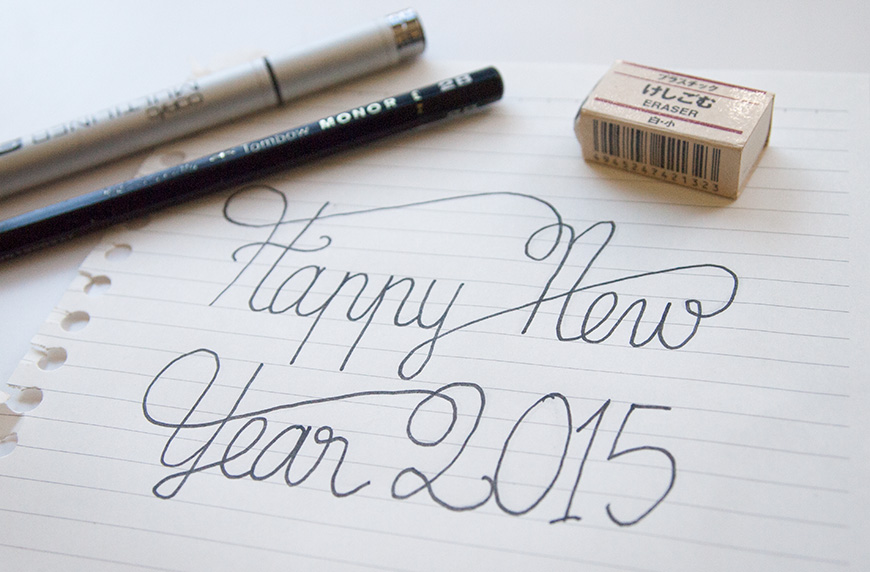 MULTILINER
COPIC
Tombow MONO R 2B
プラスチック
けしごむ
ERASER
白・小
4945247421323
Happy New
Year 2015